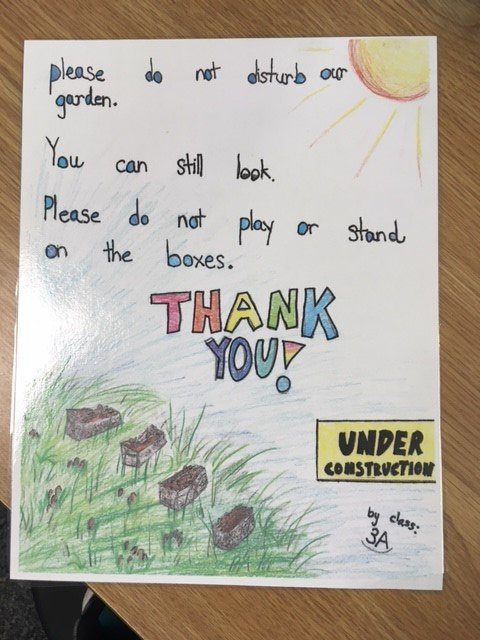 please do not disturb our
garden.
You can still look.
Please do not play or stand
on the boxes.
THANK
YOU!
UNDER
CONSTRUCTION
by class:
3A